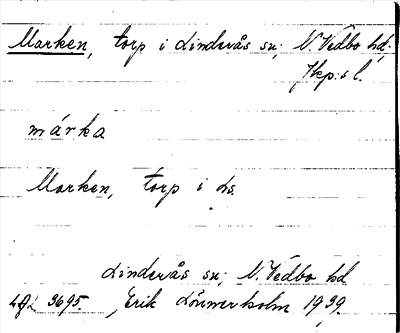 Marken, torp i Linderås sn; N. Vedbo hd;
Jkp:s l.
márka
Marken, torp i Ls
Linderås sn; N. Vedbo hd
3695. Erik Lönnerholm 1939.